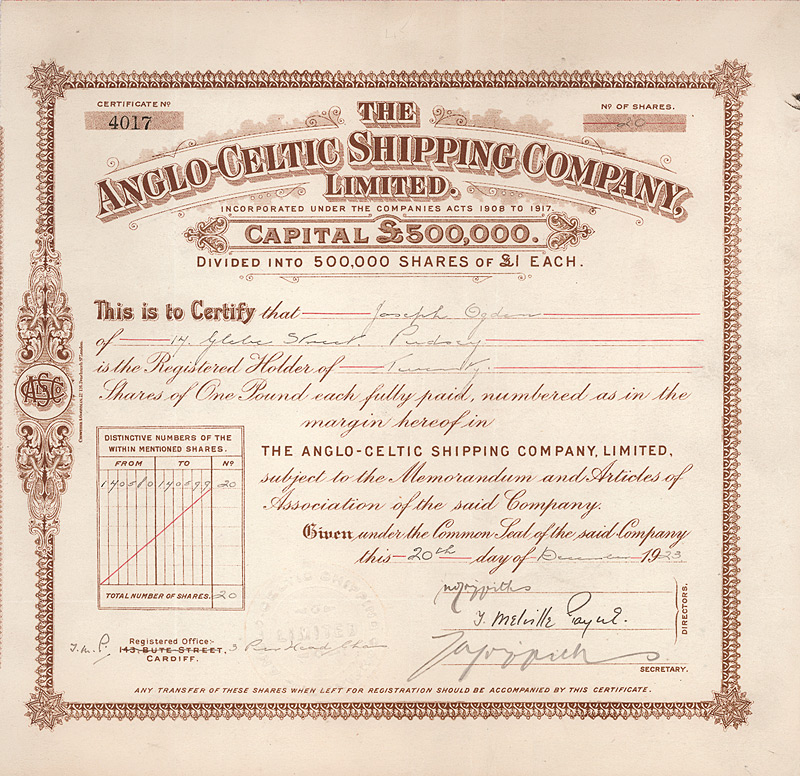 CERTIFICATE Nº
4017
Nº OF SHARES.
20
THE
ANGLO-CELTIC SHIPPING COMPANY,
LIMITED.
INCORPORATED UNDER THE COMPANIES ACTS 1908 TO 1917.
CAPITAL £500,000.
DIVIDED INTO 500,000 SHARES OF £1 EACH.
This is to Certify that Joseph Ogden
of 14, Glebe Street, Pudsey
is the Registered Holder of Twenty
Shares of One Pound each fully paid, numbered as in the
margin hereof in
THE ANGLO-CELTIC SHIPPING COMPANY, LIMITED,
subject to the Memorandum and Articles of
Association of the said Company.
Given under the Common Seal of the said Company
this 20th day of December 1923
DISTINCTIVE NUMBERS OF THE
WITHIN MENTIONED SHARES.
FROM TO Nº
140580 140599 20
TOTAL NUMBER OF SHARES. 20
J. Melville
DIRECTORS.
SECRETARY.
Registered Office:-
143, BUTE STREET, 3
CARDIFF.
ANY TRANSFER OF THESE SHARES WHEN LEFT FOR REGISTRATION SHOULD BE ACCOMPANIED BY THIS CERTIFICATE.